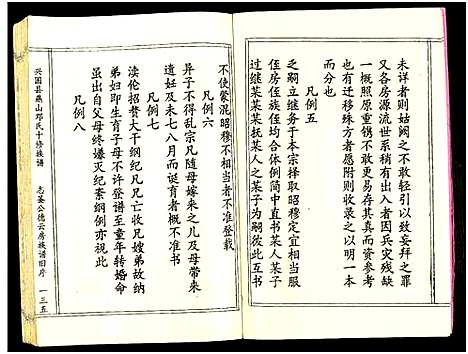 未详者则姑阙之不敢轻引以致妄拜之罪
又各房源流不无差异亦有因兵灾残缺
一概照原重镌不敢更易存其真而资参考
亦有迁移殊方者愿附则收录之以明一本
而分也
凡例五
之嗣立继务于本宗择取昭穆定宜相当服
侄房侄族侄均合体例简中直书某人某子
过继某某某抚某人之某子为嗣彼此互书
不使蒙混昭穆不相当者不准登载
凡例六
异子不得乱宗凡随母嫁来之儿及母带来
遗妊及未七八月而诞育者概不准书
凡例七
渎伦招赘大干纲纪凡兄亡收兄嫂弟故纳
弟妇即生育子母不许登谱至童年转婚命
虽出自父母终嫌灭纪紊纲例亦视此
凡例八
兴国县燕山邓氏十修族谱
志鉴公德云房族谱旧序
一三五